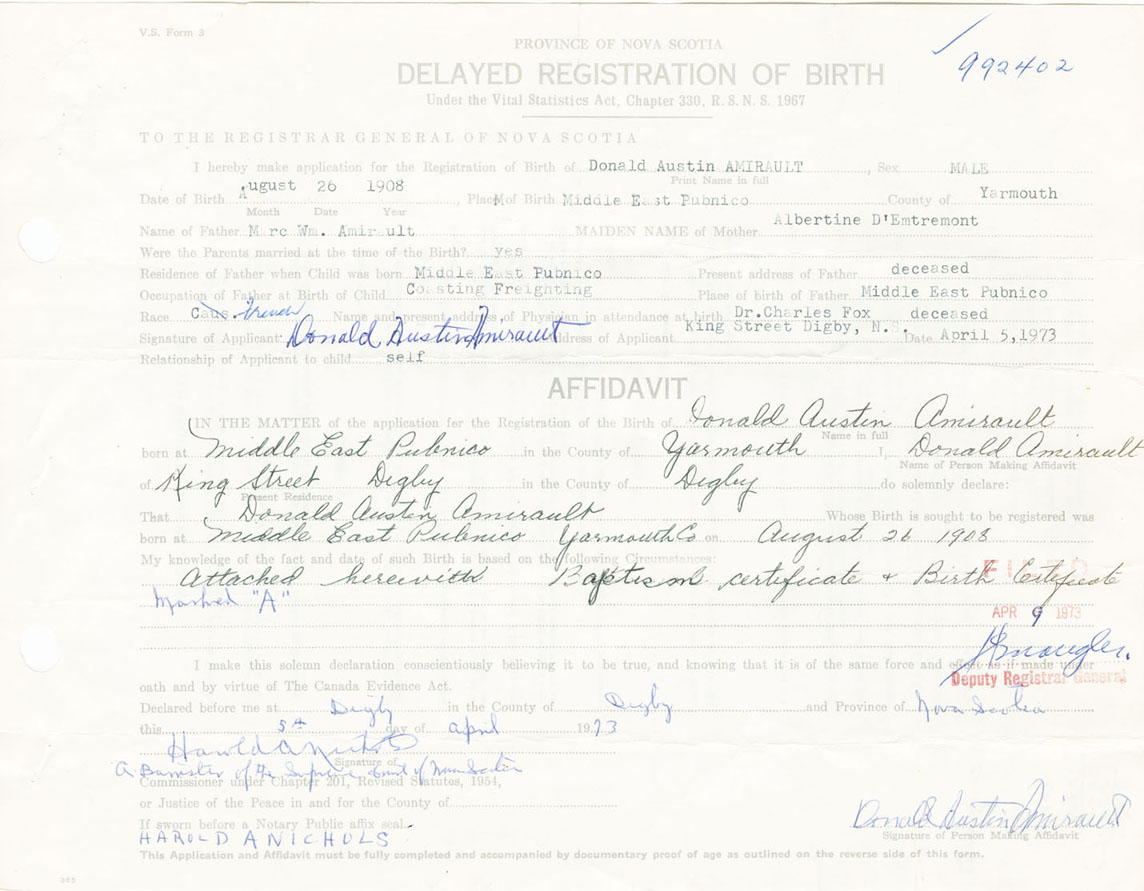 V.S. Form 3
992402
PROVINCE OF NOVA SCOTIA
DELAYED REGISTRATION OF BIRTH
Under the Vital Statistics Act, Chapter 330, R.S.N.S. 1967
TO THE REGISTRAR GENERAL OF NOVA SCOTIA
I hereby make application for the Registration of Birth of Donald Austin AMIRAULT, Sex MALE
Print Name in full
Date of Birth August 26 1908, Place of Birth Middle East Pubnico County of Yarmouth
Month Date Year
Name of Father Marc Wm. Amirault MAIDEN NAME of Mother Albertine D'Emtremont
Were the Parents married at the time of the Birth? yes
Residence of Father when Child was born Middle East Pubnico Present address of Father deceased
Occupation of Father at Birth of Child Coasting Freighting Place of birth of Father Middle East Pubnico
Race Caus. French Name and present address of Physician in attendance at birth Dr.Charles Fox deceased
Signature of Applicant Donald Austin Amirault Address of Applicant King Street Digby, N.S. Date April 5,1973
Relationship of Applicant to child self
AFFIDAVIT
IN THE MATTER of the application for the Registration of the Birth of Donald Austin Amirault
Name in full
born at Middle East Pubnico in the County of Yarmouth I, Donald Amirault
Name of Person Making Affidavit
of King Street Digby in the County of Digby do solemnly declare:
Present Residence
That Donald Austin Amirault Whose Birth is sought to be registered was
born at Middle East Pubnico Yarmouth Co on August 26 1908
My knowledge of the fact and date of such Birth is based on the following Circumstances:
Attached herewith Baptism certificate & Birth Certificate
Marked "A"
APR 9 1973
I make this solemn declaration conscientiously believing it to be true, and knowing that it is of the same force and effect as if made under
Deputy Registrar General
oath and by virtue of The Canada Evidence Act.
Declared before me at Digby in the County of Digby and Province of Nova Scotia
this 5th day of April 1973
Harold A Nichols
Signature of
A Barrister of the Supreme Court of Nova Scotia
Commissioner under Chapter 201, Revised Statutes, 1954,
or Justice of the Peace in and for the County of
If sworn before a Notary Public affix seal.
HAROLD A NICHOLS
Donald Austin Amirault
Signature of Person Making Affidavit
This Application and Affidavit must be fully completed and accompanied by documentary proof of age as outlined on the reverse side of this form.